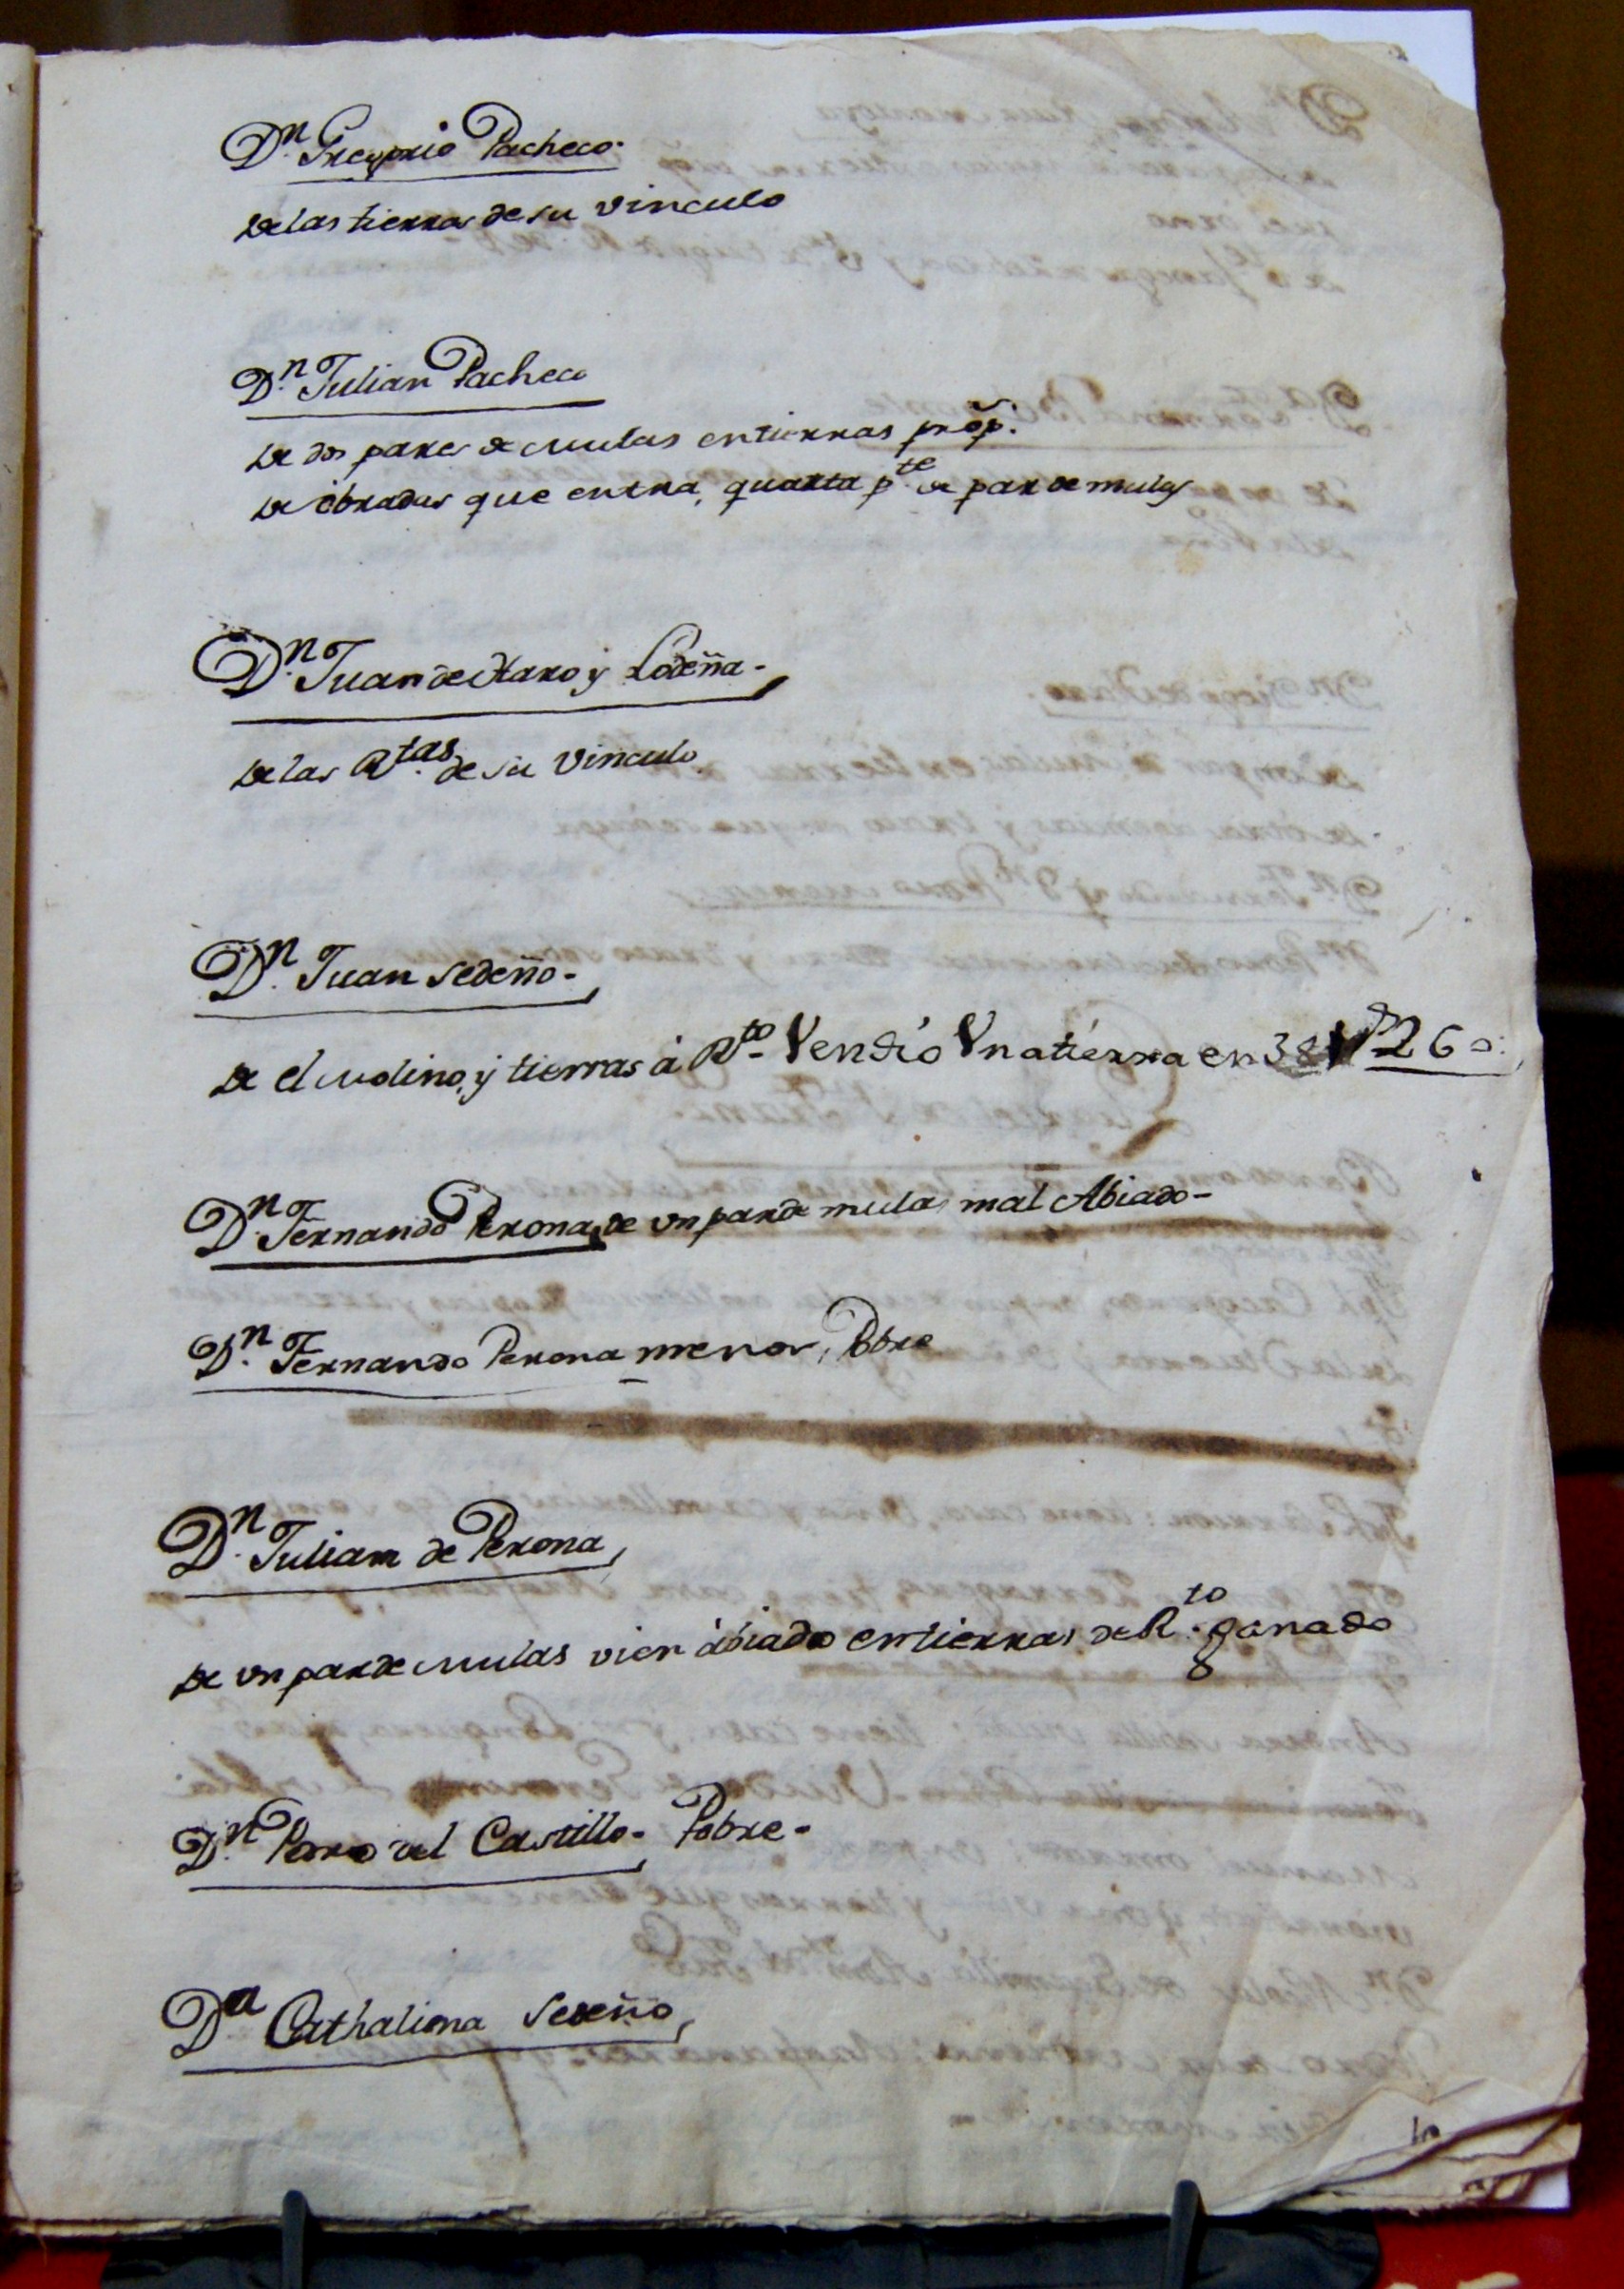 Dn. Gregorio Pacheco.
de las tierras de su vinculo
Dn. Julian Pacheco
de dos pares de mulas en tierras prop.
de obradas que entra, quarta pte. de par de mulas
Dn. Juan de Haro y Lodeña.
de las Rtas. de su vinculo
Dn. Juan Sedeño.
de el molino, y tierras á Rto. Vendió Vna tierra en
Dn. Fernando Perona, de vn par de mulas mal Abiado
Dn. Fernando Perona menor, Pobre
Dn. Juliam de Perona,
de vn par de mulas vien ábiado en tierras de Rto. ganado
Dn. Pedro del Castillo. Pobre.
Da. Cathalina Sedeño,